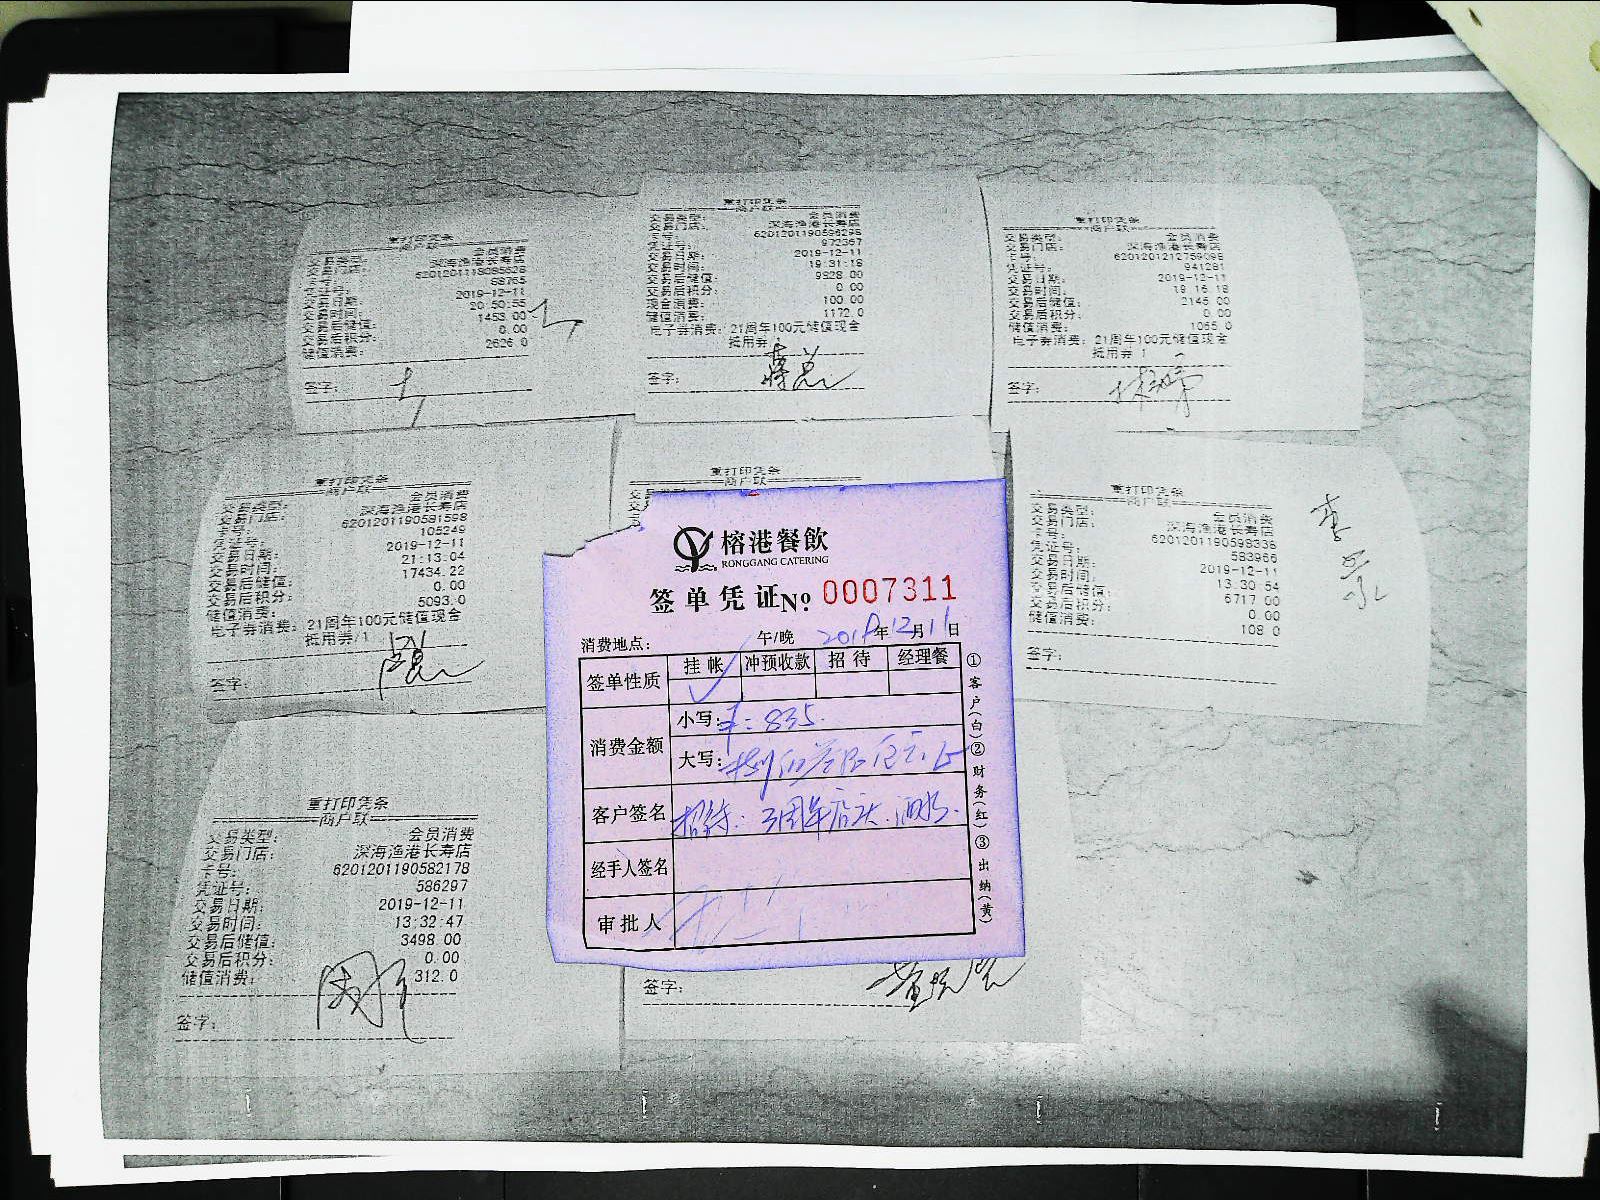 重打印凭条
商户联
交易类型: 会员消费
交易门店: 深海渔港长寿店
卡号: 6201201118085628
凭证号: 58765
交易日期: 2019-12-11
交易时间: 20:50:55
交易后储值: 1453.00
交易后积分: 0.00
储值消费: 2626.0
签字:
重打印凭条
商户联
交易类型: 会员消费
交易门店: 深海渔港长寿店
卡号: 6201201190596298
凭证号: 972367
交易日期: 2019-12-11
交易时间: 19:31:18
交易后储值: 9828.00
交易后积分: 0.00
现金消费: 100.00
储值消费: 1172.0
电子券消费: 21周年100元储值现金
抵用券
签字: 蒋总
重打印凭条
商户联
交易类型: 会员消费
交易门店: 深海渔港长寿店
卡号: 6201201212759098
凭证号: 941281
交易日期: 2019-12-11
交易时间: 19:16:18
交易后储值: 2145.00
交易后积分: 0.00
储值消费: 1065.0
电子券消费: 21周年100元储值现金
抵用券 1
签字:
重打印凭条
商户联
交易类型: 会员消费
交易门店: 深海渔港长寿店
卡号: 6201201190581598
凭证号: 105249
交易日期: 2019-12-11
交易时间: 21:13:04
交易后储值: 17434.22
交易后积分: 0.00
储值消费: 5093.0
电子券消费: 21周年100元储值现金
抵用券/1
签字:
重打印凭条
商户联
榕港餐飲
RONGGANG CATERING
签单凭证 No. 0007311
消费地点: 午/晚 2019年12月11日
签单性质 挂帐 冲预收款 招待 经理餐
消费金额 小写: ¥: 835.
大写:
客户签名 招待:
经手人签名
审批人
①客户(白)②财务(红)③出纳(黄)
签字:
重打印凭条
商户联
交易类型: 会员消费
交易门店: 深海渔港长寿店
卡号: 6201201190598338
凭证号: 583966
交易日期: 2019-12-11
交易时间: 13:30:54
交易后储值: 6717.00
交易后积分: 0.00
储值消费: 108.0
签字:
重打印凭条
商户联
交易类型: 会员消费
交易门店: 深海渔港长寿店
卡号: 6201201190582178
凭证号: 586297
交易日期: 2019-12-11
交易时间: 13:32:47
交易后储值: 3498.00
交易后积分: 0.00
储值消费: 312.0
签字: